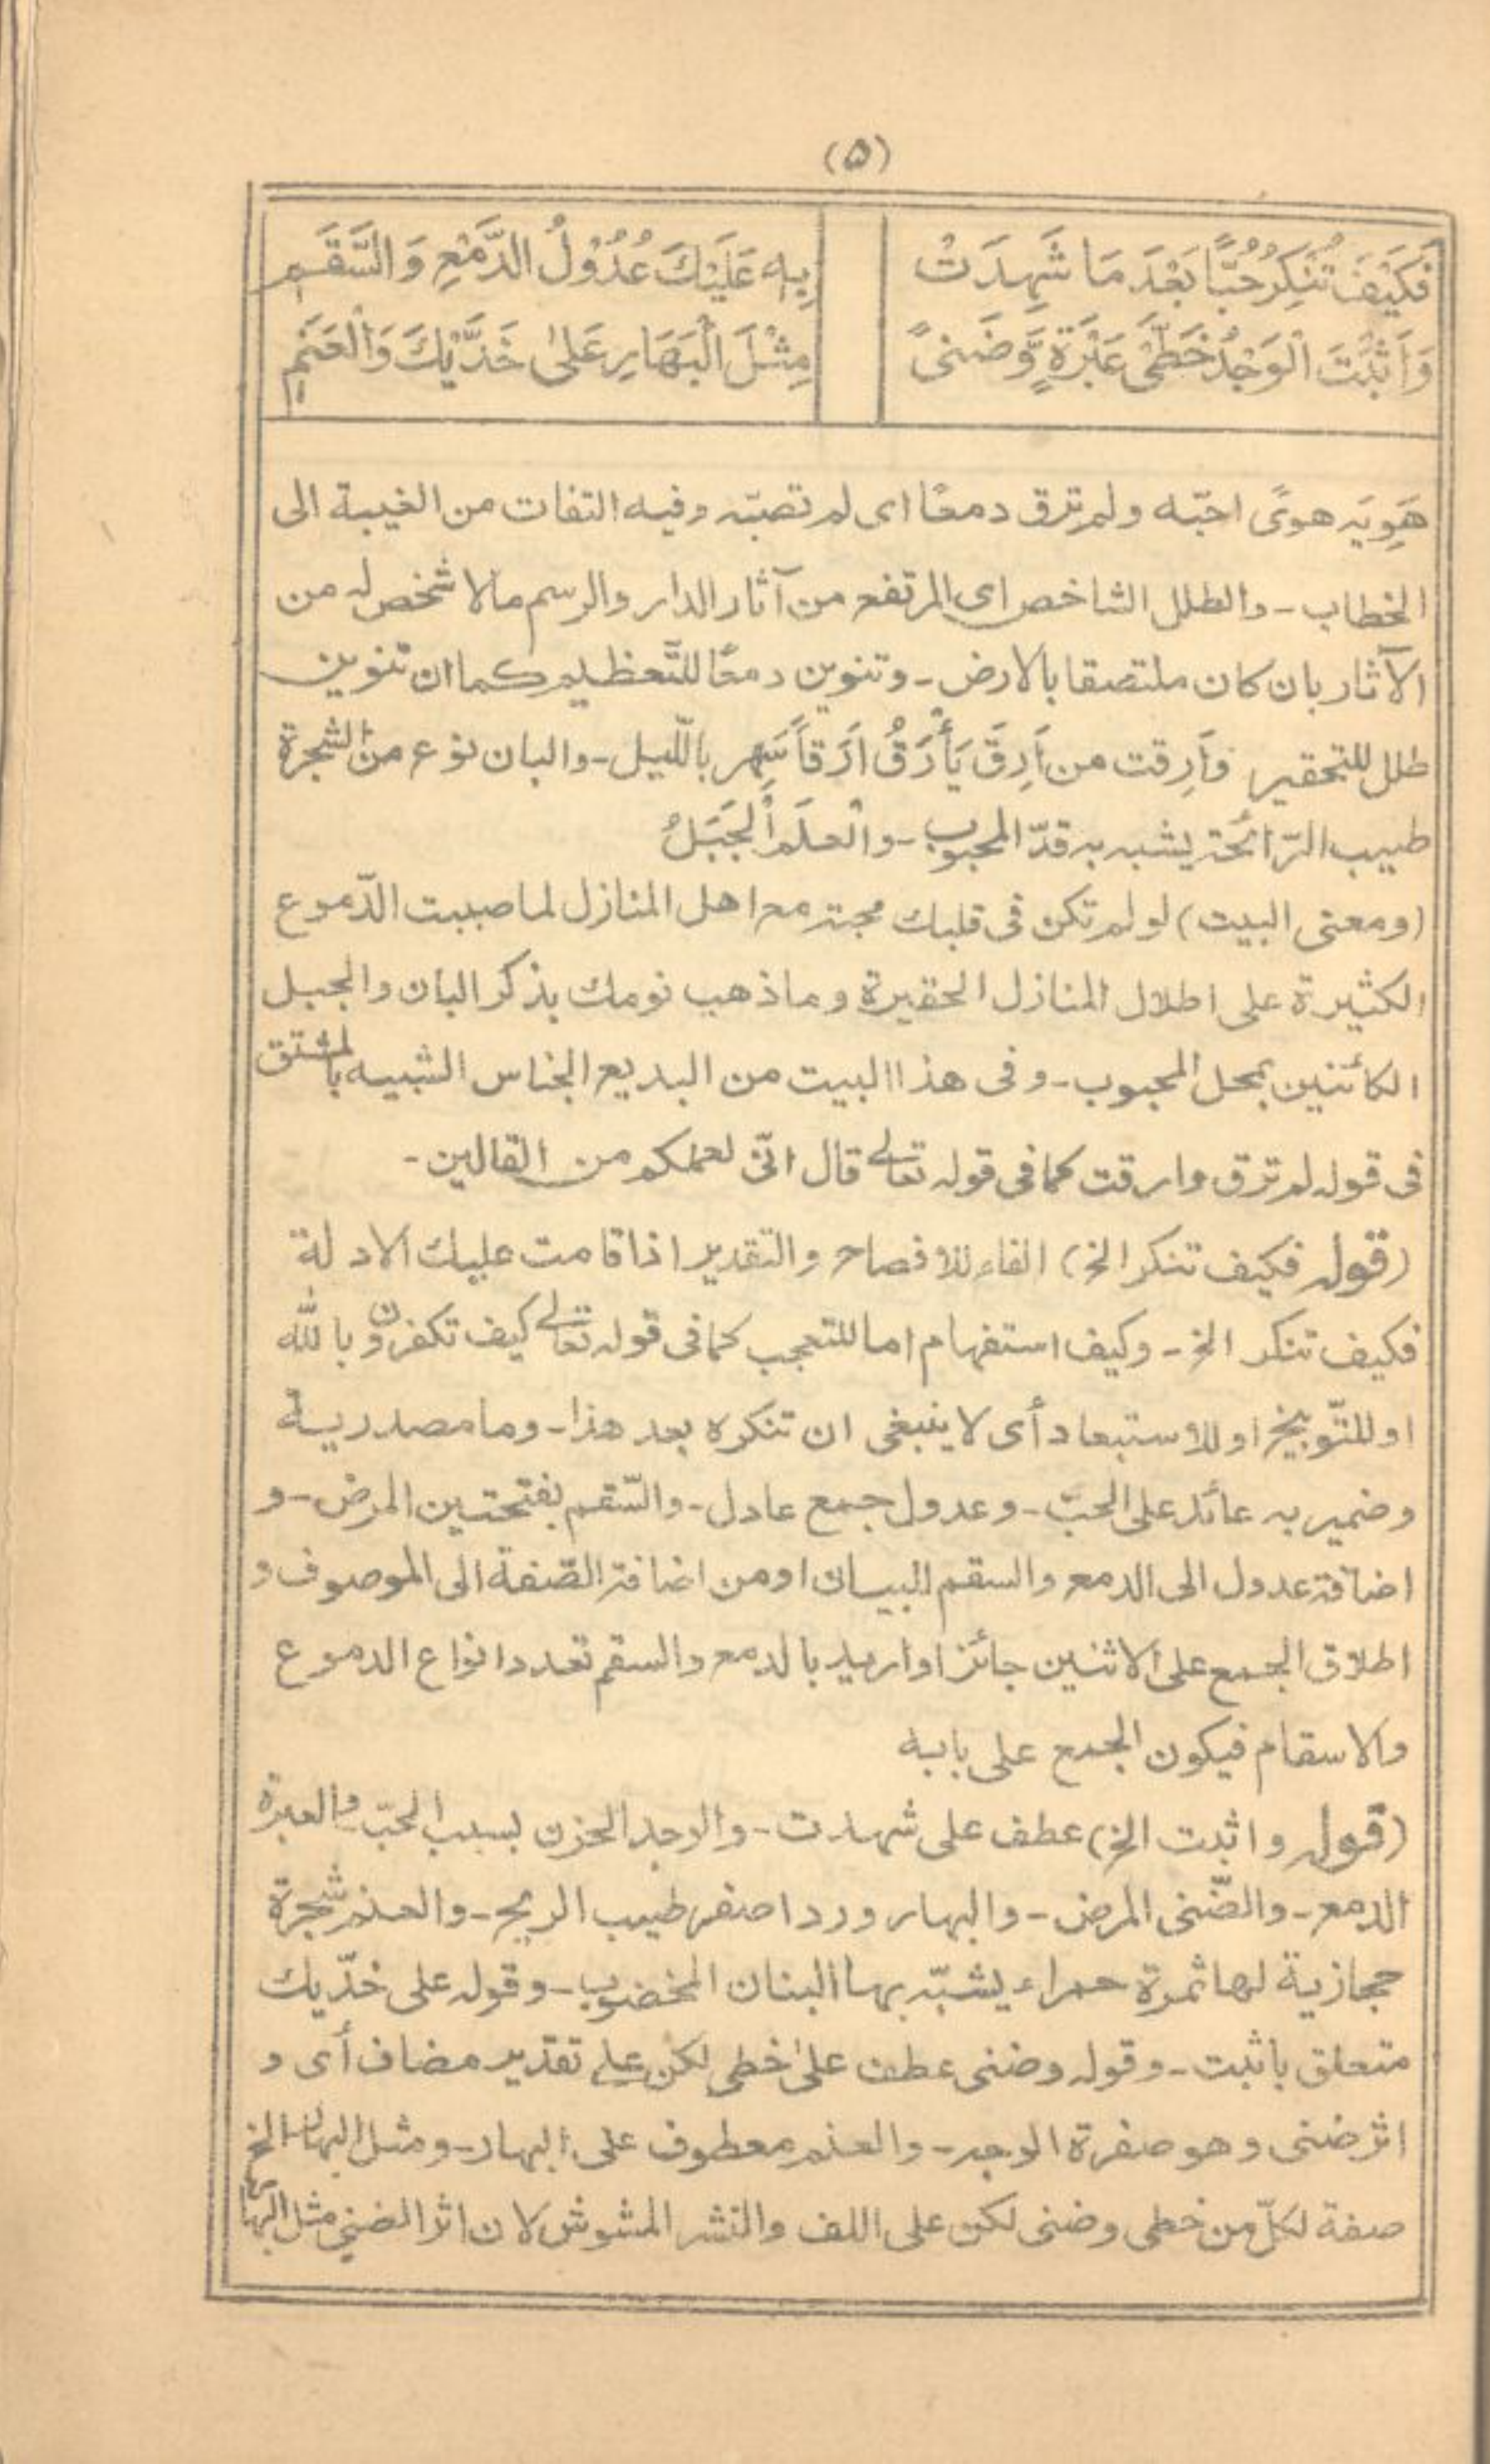 (۵)
فَكَيْفَ تُنْكِرُ حُبًّا بَعْدَ مَا شَهِدَتْ بِهٖ عَلَيْكَ عُدُوْلُ الدَّمْعِ وَالسَّقَمِ
وَاَثْبَتَ الْوَجْدُ خَطَّىْ عَبْرَةٍ وَّضَنىً مِثْلَ الْبَهَارِ عَلىٰ خَدَّيْكَ وَالْعَنَمِ
هَوِيَه هوىً احبّه ولم ترق دمعًا اى لم تصبّه وفيه التفات من الغيبة الى
الخطاب - والطلل الشاخص اى المرتفع من آثار الدار والرسم مالا شخص له من
الآثار بان كان ملتصقا بالارض - وتنوين دمعًا للتّعظيم كما ان تنوين
طلل للتحقير وَاَرِقت من اَرِقَ يَأْرَقُ اَرَقاً سَهِر بالليل - والبان نوع من الشجرة
طيب الرّائحة يشبه به قدّ المحبوب - والْعلَم الْجَبَلُ
(ومعنى البيت) لو لم تكن فى قلبك محبة مع اهل المنازل لما صببت الدّموع
الكثيرة على اطلال المنازل الحقيرة وما ذهب نومك بذكر البان والجبل
الكائنين بمحل المحبوب - وفى هذا البيت من البديع الجناس الشبيه بالمشتق
فى قوله لم ترق وارقت كما فى قوله تعالى قال انّى لعملكم من القالين -
(قوله فكيف تنكر الخ) الفاء للافصاح والتقدير اذا قامت عليك الادلة
فكيف تنكر الخ - وكيف استفهام اما للتعجب كما فى قوله تعالى كيف تكفرون بالله
او للتّوبيخ او للاستبعاد أى لا ينبغى ان تنكره بعد هذا - وما مصدرية
وضمير به عائد على الحبّ - وعدول جمع عادل - والسّقم بفتحتين المرض - و
اضافة عدول الى الدمع والسقم للبيان او من اضافة الصّفة الى الموصوف و
اطلاق الجمع على الاثنين جائز او اريد بالدمع والسقم تعدد انواع الدموع
والاسقام فيكون الجمع على بابه
(قوله واثبت الخ) عطف على شهدت - والوجد الحزن بسبب الحبّ والعبرة
الدمع - والضّنى المرض - والبهار ورد اصفر طيب الريح - والعنم شجرة
حجازية لها ثمرة حمراء يشبّه بها البنان المخضوب - وقوله على خدّيك
متعلق باثبت - وقوله وضنى عطف علىٰ خطى لكن على تقدير مضاف أى و
اثر ضنى وهو صفرة الوجه - والعنم معطوف على البهار - ومثل البهار الخ
صفة لكلّ من خطى وضنى لكن على اللف والنشر المشوش لان اثر الضنى مثل البهار